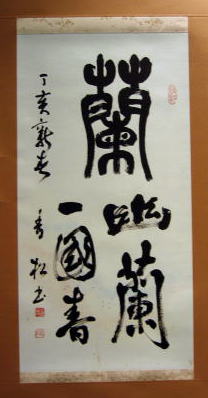 蘭
幽蘭
一國香
丁亥新春 松書